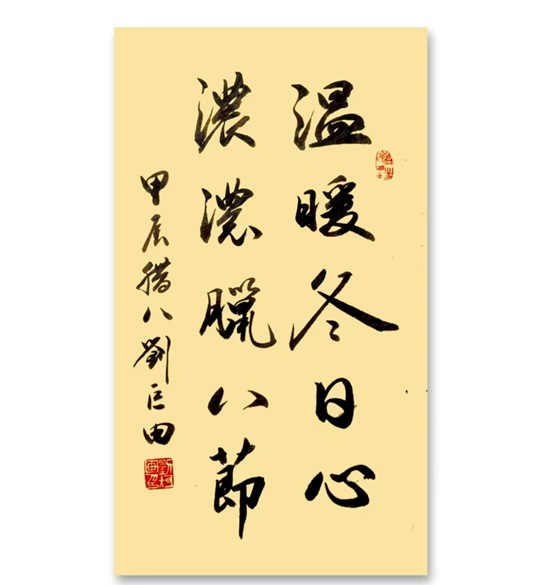 温暖冬日心
濃濃臘八節
甲辰腊八劉巨田